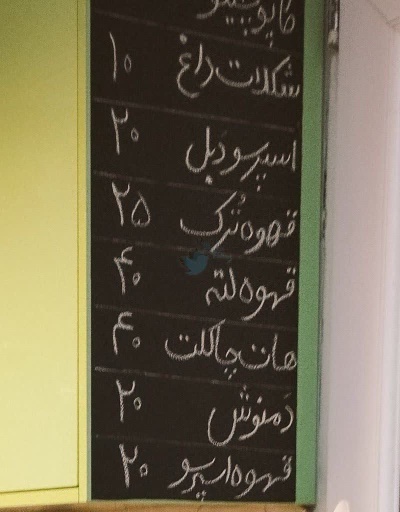 کاپوچینو
شکلات داغ ۱۰
اسپرسو دبل ۲۰
قهوه تُرک ۲۵
قهوه لته ۴۰
هات چاکلت ۴۰
دَمنوش ۲۰
قهوه اسپرسو ۲۰